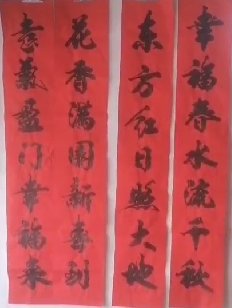 幸福春水流千秋
东方红日照大地
花香满園新春到
喜氣盈门幸福来